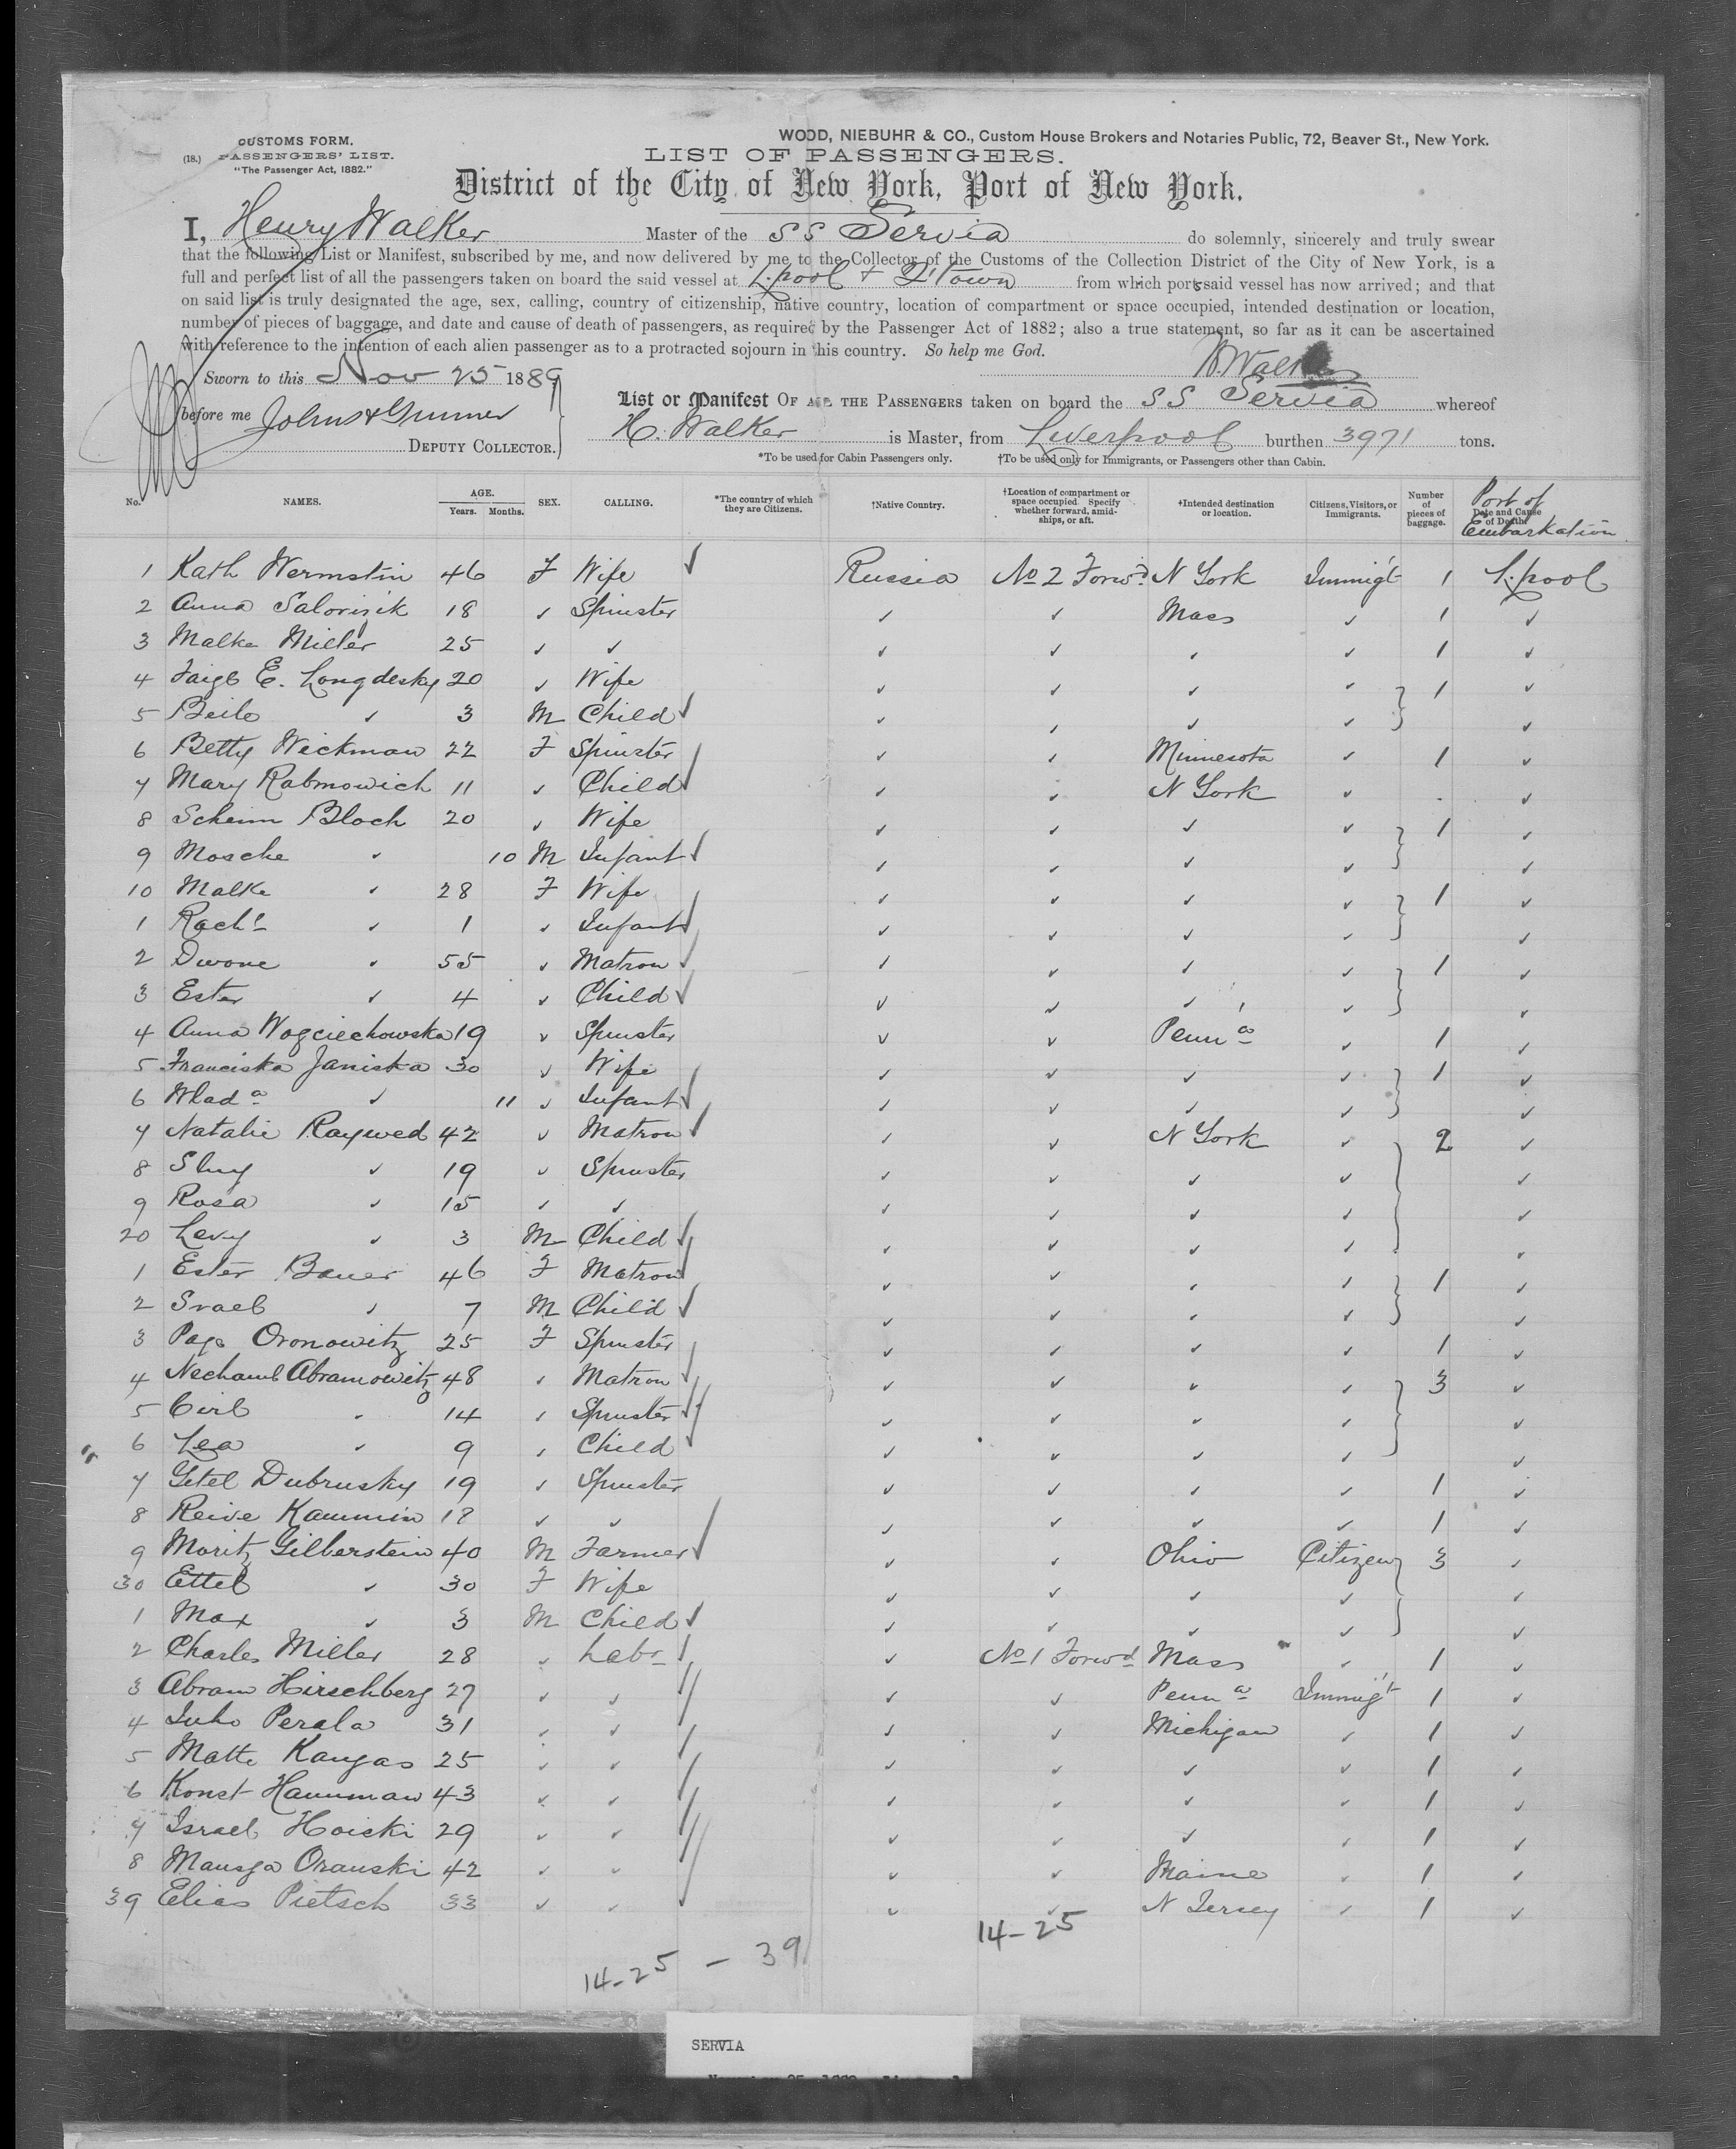 CUSTOMS FORM.
(18.) PASSENGERS' LIST.
"The Passenger Act, 1882."
WOOD, NIEBUHR & CO., Custom House Brokers and Notaries Public, 72, Beaver St., New York.
LIST OF PASSENGERS.
District of the City of New York, Port of New York.
I, Henry Walker Master of the SS Servia do solemnly, sincerely and truly swear
that the following List or Manifest, subscribed by me, and now delivered by me to the Collector of the Customs of the Collection District of the City of New York, is a
full and perfect list of all the passengers taken on board the said vessel at L.pool + Q'town from which ports said vessel has now arrived; and that
on said list is truly designated the age, sex, calling, country of citizenship, native country, location of compartment or space occupied, intended destination or location,
number of pieces of baggage, and date and cause of death of passengers, as required by the Passenger Act of 1882; also a true statement, so far as it can be ascertained
with reference to the intention of each alien passenger as to a protracted sojourn in this country. So help me God.
H. Walker
Sworn to this Nov 25 1889
before me
DEPUTY COLLECTOR.
List or Manifest OF ALL THE PASSENGERS taken on board the SS Servia whereof
H. Walker is Master, from Liverpool burthen 3971 tons.
*To be used for Cabin Passengers only. †To be used only for Immigrants, or Passengers other than Cabin.
No. NAMES. AGE. Years. Months. SEX. CALLING. *The country of which they are Citizens. †Native Country. †Location of compartment or space occupied Specify whether forward, amidships, or aft. †Intended destination or location. Citizens, Visitors, or Immigrants. Number of pieces of baggage. Date and Cause of Death. Port of Embarkation
1 Kath Wermstin 46 F Wife ✓ Russia No 2 Forwd. N York Immigt 1 L.pool
2 Anna Salorizik 18 ✓ Spinster ✓ ✓ Mass ✓ 1 ✓
3 Malke Miller 25 ✓ ✓ ✓ ✓ ✓ ✓ 1 ✓
4 Faige E. Longdesky 20 ✓ Wife ✓ ✓ ✓ ✓ } 1 ✓
5 Beile ✓ 3 M Child ✓ ✓ ✓ ✓ ✓ ✓
6 Betty Weckman 22 F Spinster ✓ ✓ Minnesota ✓ 1 ✓
7 Mary Rabmowich 11 ✓ Child ✓ ✓ ✓ N York ✓ ✓
8 Scheim Bloch 20 ✓ Wife ✓ ✓ ✓ ✓ } 1 ✓
9 Mosche ✓ 10 M Infant ✓ ✓ ✓ ✓ ✓ ✓
10 Malke ✓ 28 F Wife ✓ ✓ ✓ ✓ } 1 ✓
1 Rachl ✓ 1 ✓ Infant ✓ ✓ ✓ ✓ ✓ ✓
2 Dwone ✓ 55 ✓ Matron ✓ ✓ ✓ ✓ ✓ } 1 ✓
3 Ester ✓ 4 ✓ Child ✓ ✓ ✓ ✓ ✓ ✓
4 Anna Wogciechowska 19 ✓ Spinster ✓ ✓ Penna ✓ 1 ✓
5 Franciska Janiska 30 ✓ Wife ✓ ✓ ✓ ✓ } 1 ✓
6 Wlada ✓ 11 ✓ Infant ✓ ✓ ✓ ✓ ✓ ✓
7 Natalie Raywed 42 ✓ Matron ✓ ✓ ✓ N York ✓ } 2 ✓
8 Sluy ✓ 19 ✓ Spinster ✓ ✓ ✓ ✓ ✓
9 Rosa ✓ 15 ✓ ✓ ✓ ✓ ✓ ✓ ✓
20 Levy ✓ 3 M Child ✓ ✓ ✓ ✓ ✓ ✓
1 Ester Bauer 46 F Matron ✓ ✓ ✓ ✓ ✓ } 1 ✓
2 Sraeb ✓ 7 M Child ✓ ✓ ✓ ✓ ✓ ✓
3 Page Oronowitz 25 F Spinster ✓ ✓ ✓ ✓ 1 ✓
4 Nechaml Abramowitz 48 ✓ Matron ✓ ✓ ✓ ✓ ✓ } 3 ✓
5 Cirl ✓ 14 ✓ Spinster ✓ ✓ ✓ ✓ ✓ ✓
6 Lea ✓ 9 ✓ Child ✓ ✓ ✓ ✓ ✓ ✓
7 Getel Dubrusky 19 ✓ Spinster ✓ ✓ ✓ ✓ 1 ✓
8 Reive Kammin 18 ✓ ✓ ✓ ✓ ✓ ✓ 1 ✓
9 Moritz Gilberstein 40 M Farmer ✓ ✓ ✓ Ohio Citizen } 3 ✓
30 Ettel ✓ 30 F Wife ✓ ✓ ✓ ✓ ✓
1 Max ✓ 3 M Child ✓ ✓ ✓ ✓ ✓ ✓
2 Charles Miller 28 ✓ Labr ✓ No 1 Forwd Mass ✓ 1 ✓
3 Abram Hirschberg 27 ✓ ✓ ✓ ✓ Penna Immigt 1 ✓
4 Juho Perala 31 ✓ ✓ ✓ ✓ Michigan ✓ 1 ✓
5 Matte Kangas 25 ✓ ✓ ✓ ✓ ✓ ✓ 1 ✓
6 Konst Hannman 43 ✓ ✓ ✓ ✓ ✓ ✓ 1 ✓
7 Israel Hoiski 29 ✓ ✓ ✓ ✓ ✓ ✓ 1 ✓
8 Mausga Oranski 42 ✓ ✓ ✓ ✓ Maine ✓ 1 ✓
39 Elias Pietsch 33 ✓ ✓ ✓ ✓ N Jersey ✓ 1 ✓
14-25
14-25 - 39
SERVIA